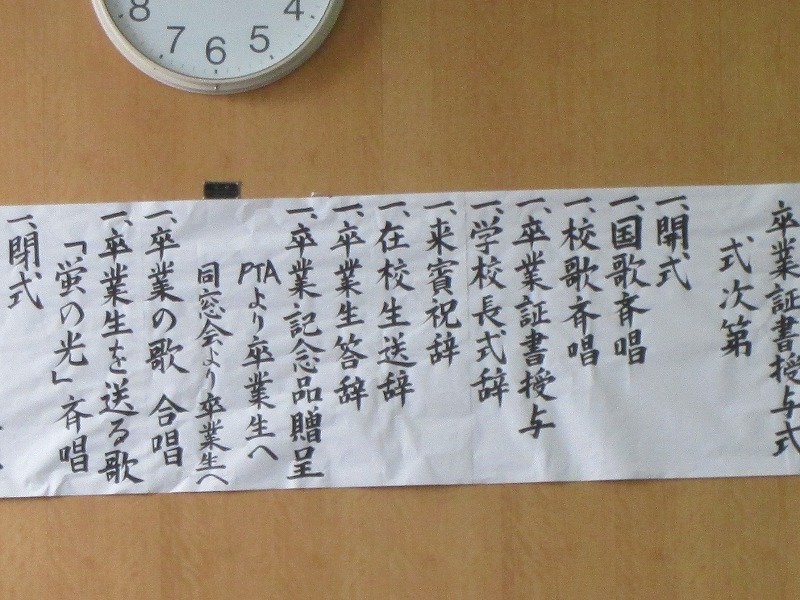 卒業証書授与式
式次第
一、開式
一、国歌斉唱
一、校歌斉唱
一、卒業証書授与
一、学校長式辞
一、来賓祝辞
一、在校生送辞
一、卒業生答辞
一、卒業記念品贈呈
PTAより卒業生へ
同窓会より卒業生へ
一、卒業の歌 合唱
一、卒業生を送る歌
「蛍の光」斉唱
一、閉式
8 7 6 5 4